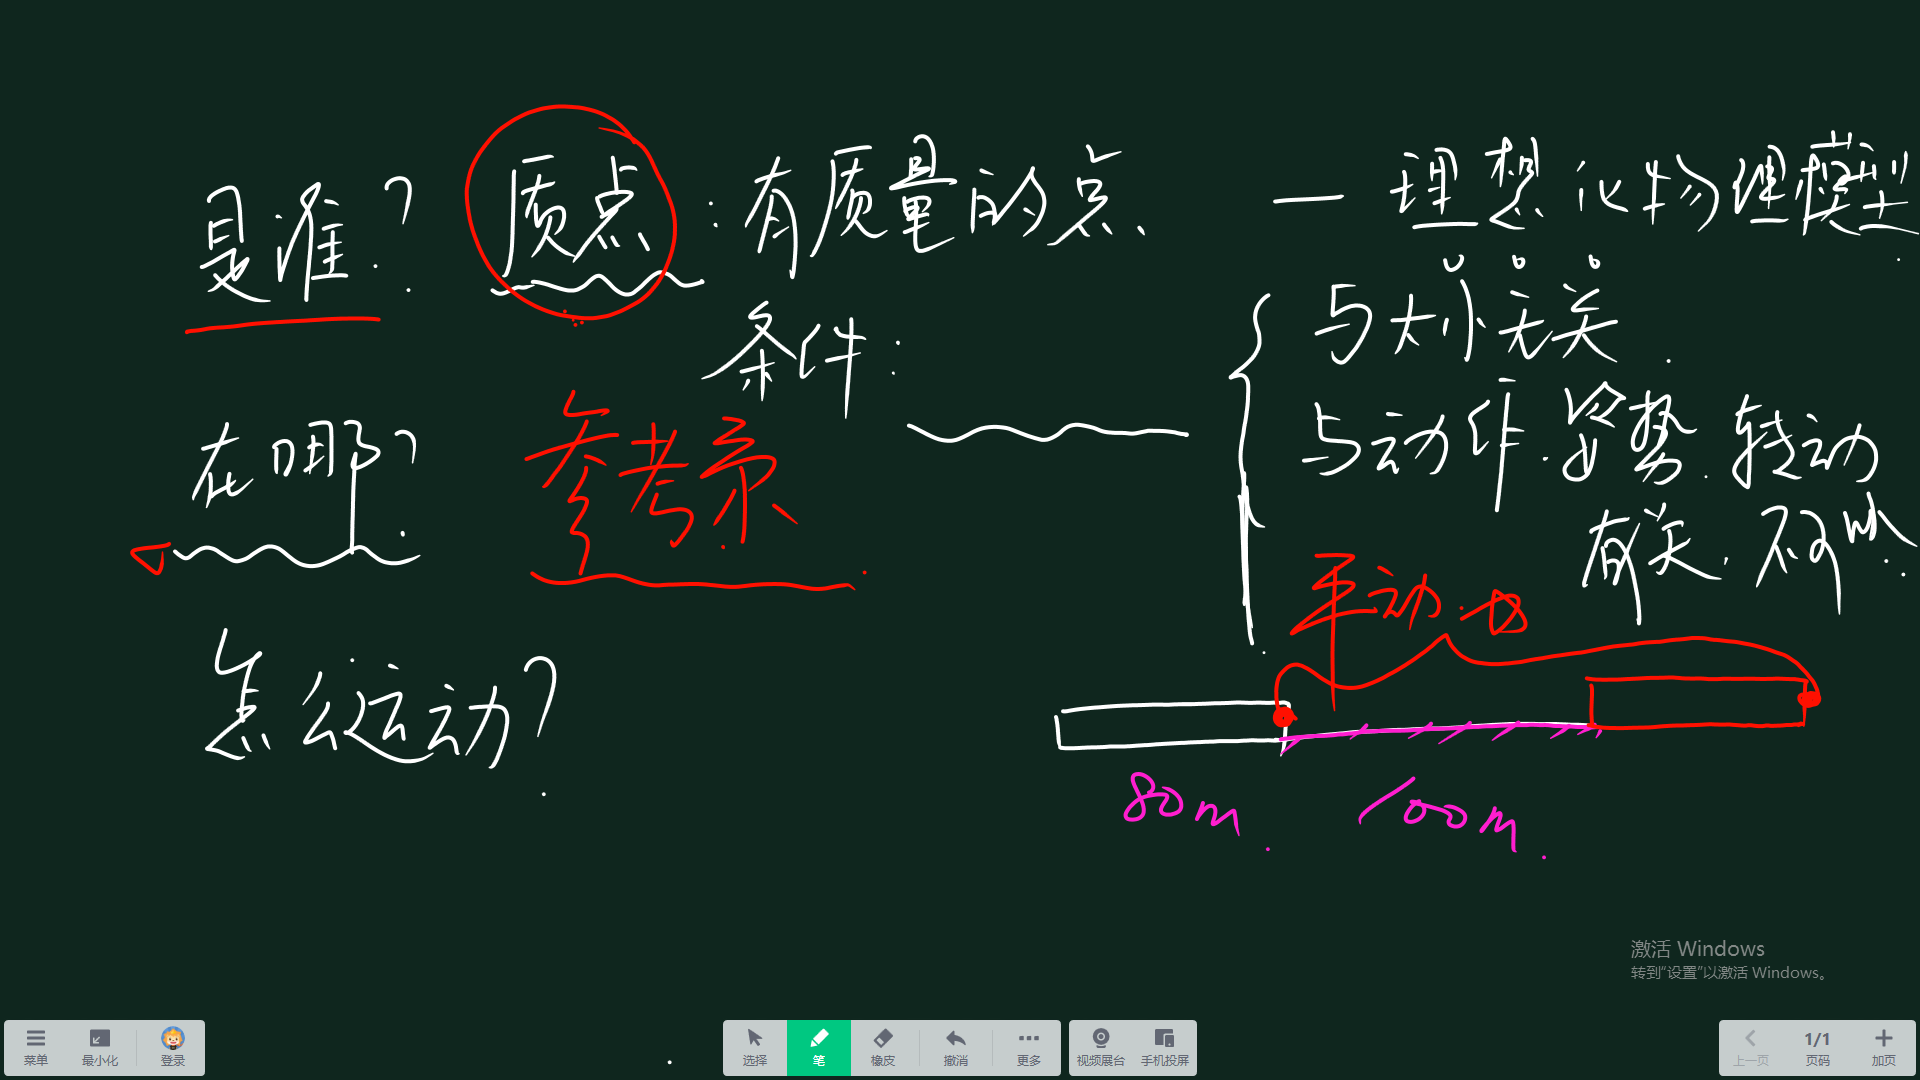 是谁? 质点:有质量的点. — 理想化物理模型.
条件: 与大小无关.
在哪? 参考系 与动作.姿势.转动
有关,不可以.
平动.
怎么运动?
80m. 100m.
激活 Windows
转到"设置"以激活 Windows。
菜单 最小化 登录 选择 笔 橡皮 撤消 更多 视频展台 手机投屏 上一页 1/1 页码 加页